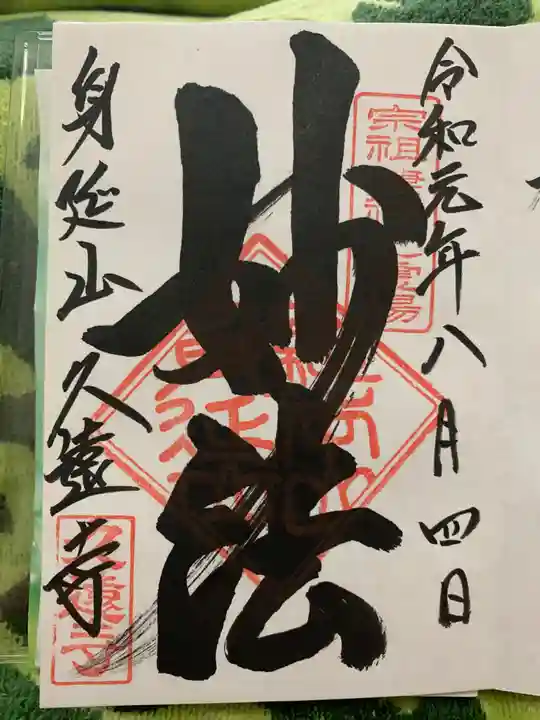 令和元年八月四日
宗祖
霊場
妙法
身延山久遠寺
久遠寺